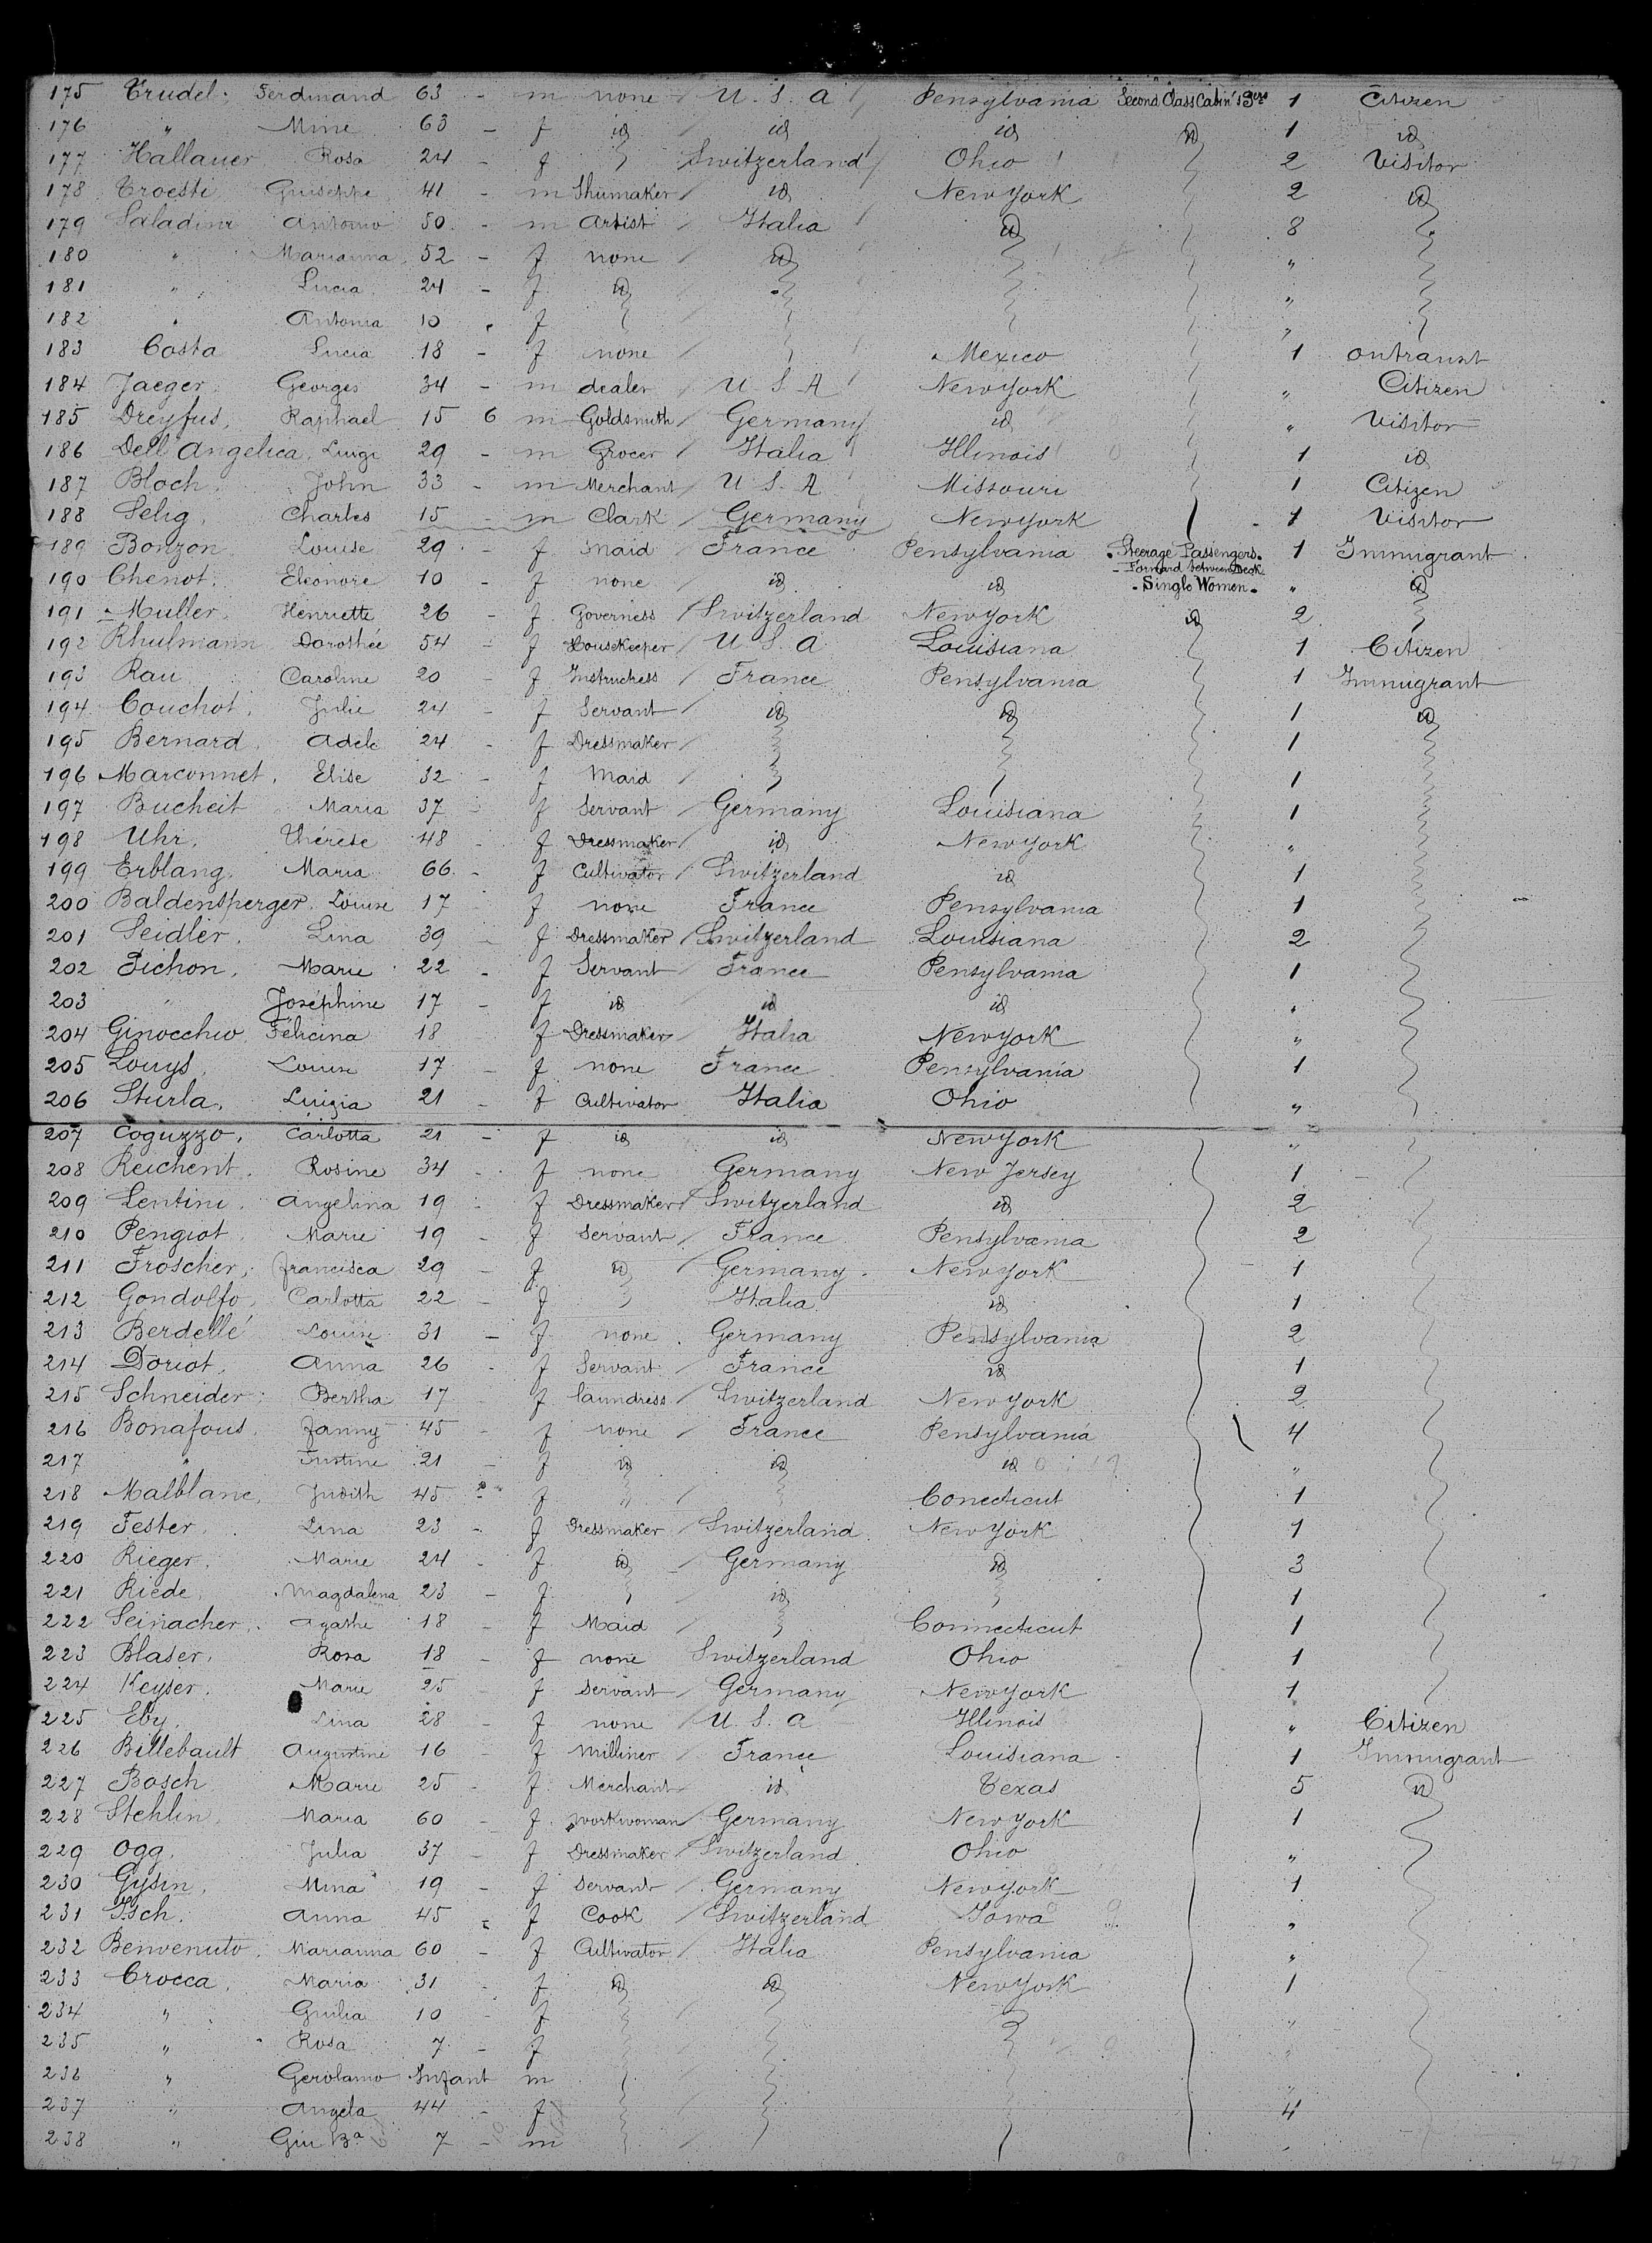 175 Trudel. Ferdinand 63 - m none U. S. A Pensylvania Second Class Cabin's Sgrs 1 Citizen
176 " Mine 63 - f id id id id 1 id
177 Hallauer Rosa 24 - f Switzerland Ohio 2 Visitor
178 Troesti Guiseppe 41 - m Shumaker id New York 2 id
179 Saladini Antonio 50 - m Artist Italia id 8
180 " Marianna 52 - f none id "
181 " Lucia 24 - f id "
182 " Antonia 10 - f "
183 Costa Lucia 18 - f none Mexico 1 ontransit
184 Jaeger Georges 34 - m dealer U. S. A New York " Citizen
185 Dreyfus, Raphael 15 6 m Goldsmith Germany id " Visitor
186 Dell Angelica, Luigi 29 - m Grocer Italia Illinois 1 id
187 Bloch. John 33 - m Merchant U. S. A Missouri 1 Citizen
188 Selig, Charles 15 - m Clark Germany New York - 1 Visitor
189 Bonzon Louise 29 - f Maid France Pensylvania Steerage Passengers. 1 Immugrant
- Forward between Deck
190 Chenot. Eleonore 10 - f none id id - Single Women - " id
191 Muller. Henriette 26 - f Governess Switzerland New York id 2
192 Rhulmann Dorothée 54 - f Housekeeper U. S. A Louisiana 1 Citizen
193 Rau Caroline 20 - f Instructress France Pensylvania 1 Immugrant
194 Couchot, Julie 24 - f Servant id id 1 id
195 Bernard, Adele 24 - f Dressmaker 1
196 Marconnet, Elise 32 - f Maid 1
197 Bucheit Maria 37 - f Servant Germany Louisiana 1
198 Uhr, Thérèse 48 - f Dressmaker id New York "
199 Erblang, Maria 66 - f Cultivator Switzerland id 1
200 Baldensperger. Louise 17 - f none France Pensylvania 1
201 Seidler, Lina 39 - f Dressmaker Switzerland Louisiana 2
202 Pichon, Marie 22 - f Servant France Pensylvania 1
203 " Joséphine 17 - f id id id "
204 Ginocchio Félicina 18 f Dressmaker Italia New York "
205 Louys, Louise 17 - f none France Pensylvania 1
206 Sturla, Luigia 21 - f Cultivator Italia Ohio "
207 Coguzzo, Carlotta 21 - f id id New York "
208 Reichent, Rosine 34 - f none Germany New Jersey 1
209 Lentini, Angelina 19 - f Dressmaker Switzerland id 2
210 Pengiot, Marie 19 - f Servant France Pensylvania 2
211 Froscher, Francisca 29 - f id Germany New York 1
212 Gondolfo, Carlotta 22 - f Italia id 1
213 Berdellé Louise 31 - f none Germany Pensylvania 2
214 Doriot, Anna 26 - f Servant France id 1
215 Schneider, Bertha 17 - f laundress Switzerland New York 2
216 Bonafous, Fanny 45 - f none France Pensylvania 4
217 " Justine 21 - f id id id "
218 Malblanc, Judith 45 - f " Conecticut 1
219 Fester, Lina 23 - f Dressmaker Switzerland New York 1
220 Rieger, Marie 24 - f id Germany id 3
221 Riede, Magdalena 23 - f id 1
222 Seinacher, Agathe 18 - f Maid Connecticut 1
223 Blaser, Rosa 18 - f none Switzerland Ohio 1
224 Keyser, Marie 25 f Servant Germany New York 1
225 Eby, Lina 28 - f none U. S. A Illinois " Citizen
226 Billebault Augustine 16 - f Milliner France Louisiana 1 Immugrant
227 Bosch Marie 25 - f Merchant id Texas 5 id
228 Stehlin, Maria 60 - f Workwoman Germany New York 1
229 Ogg, Julia 37 - f Dressmaker Switzerland Ohio "
230 Gysin, Mina 19 - f Servant Germany New York 1
231 Isch. Anna 45 - f Cook Switzerland Iowa "
232 Benvenuto, Marianna 60 - f Cultivator Italia Pensylvania "
233 Crocca, Maria 31 - f id id New York 1
234 " Giulia 10 - f "
235 " Rosa 7 - f "
236 " Gerolamo Infant m "
237 " Angela 44 - f 4
238 " Giu Ba 7 - m